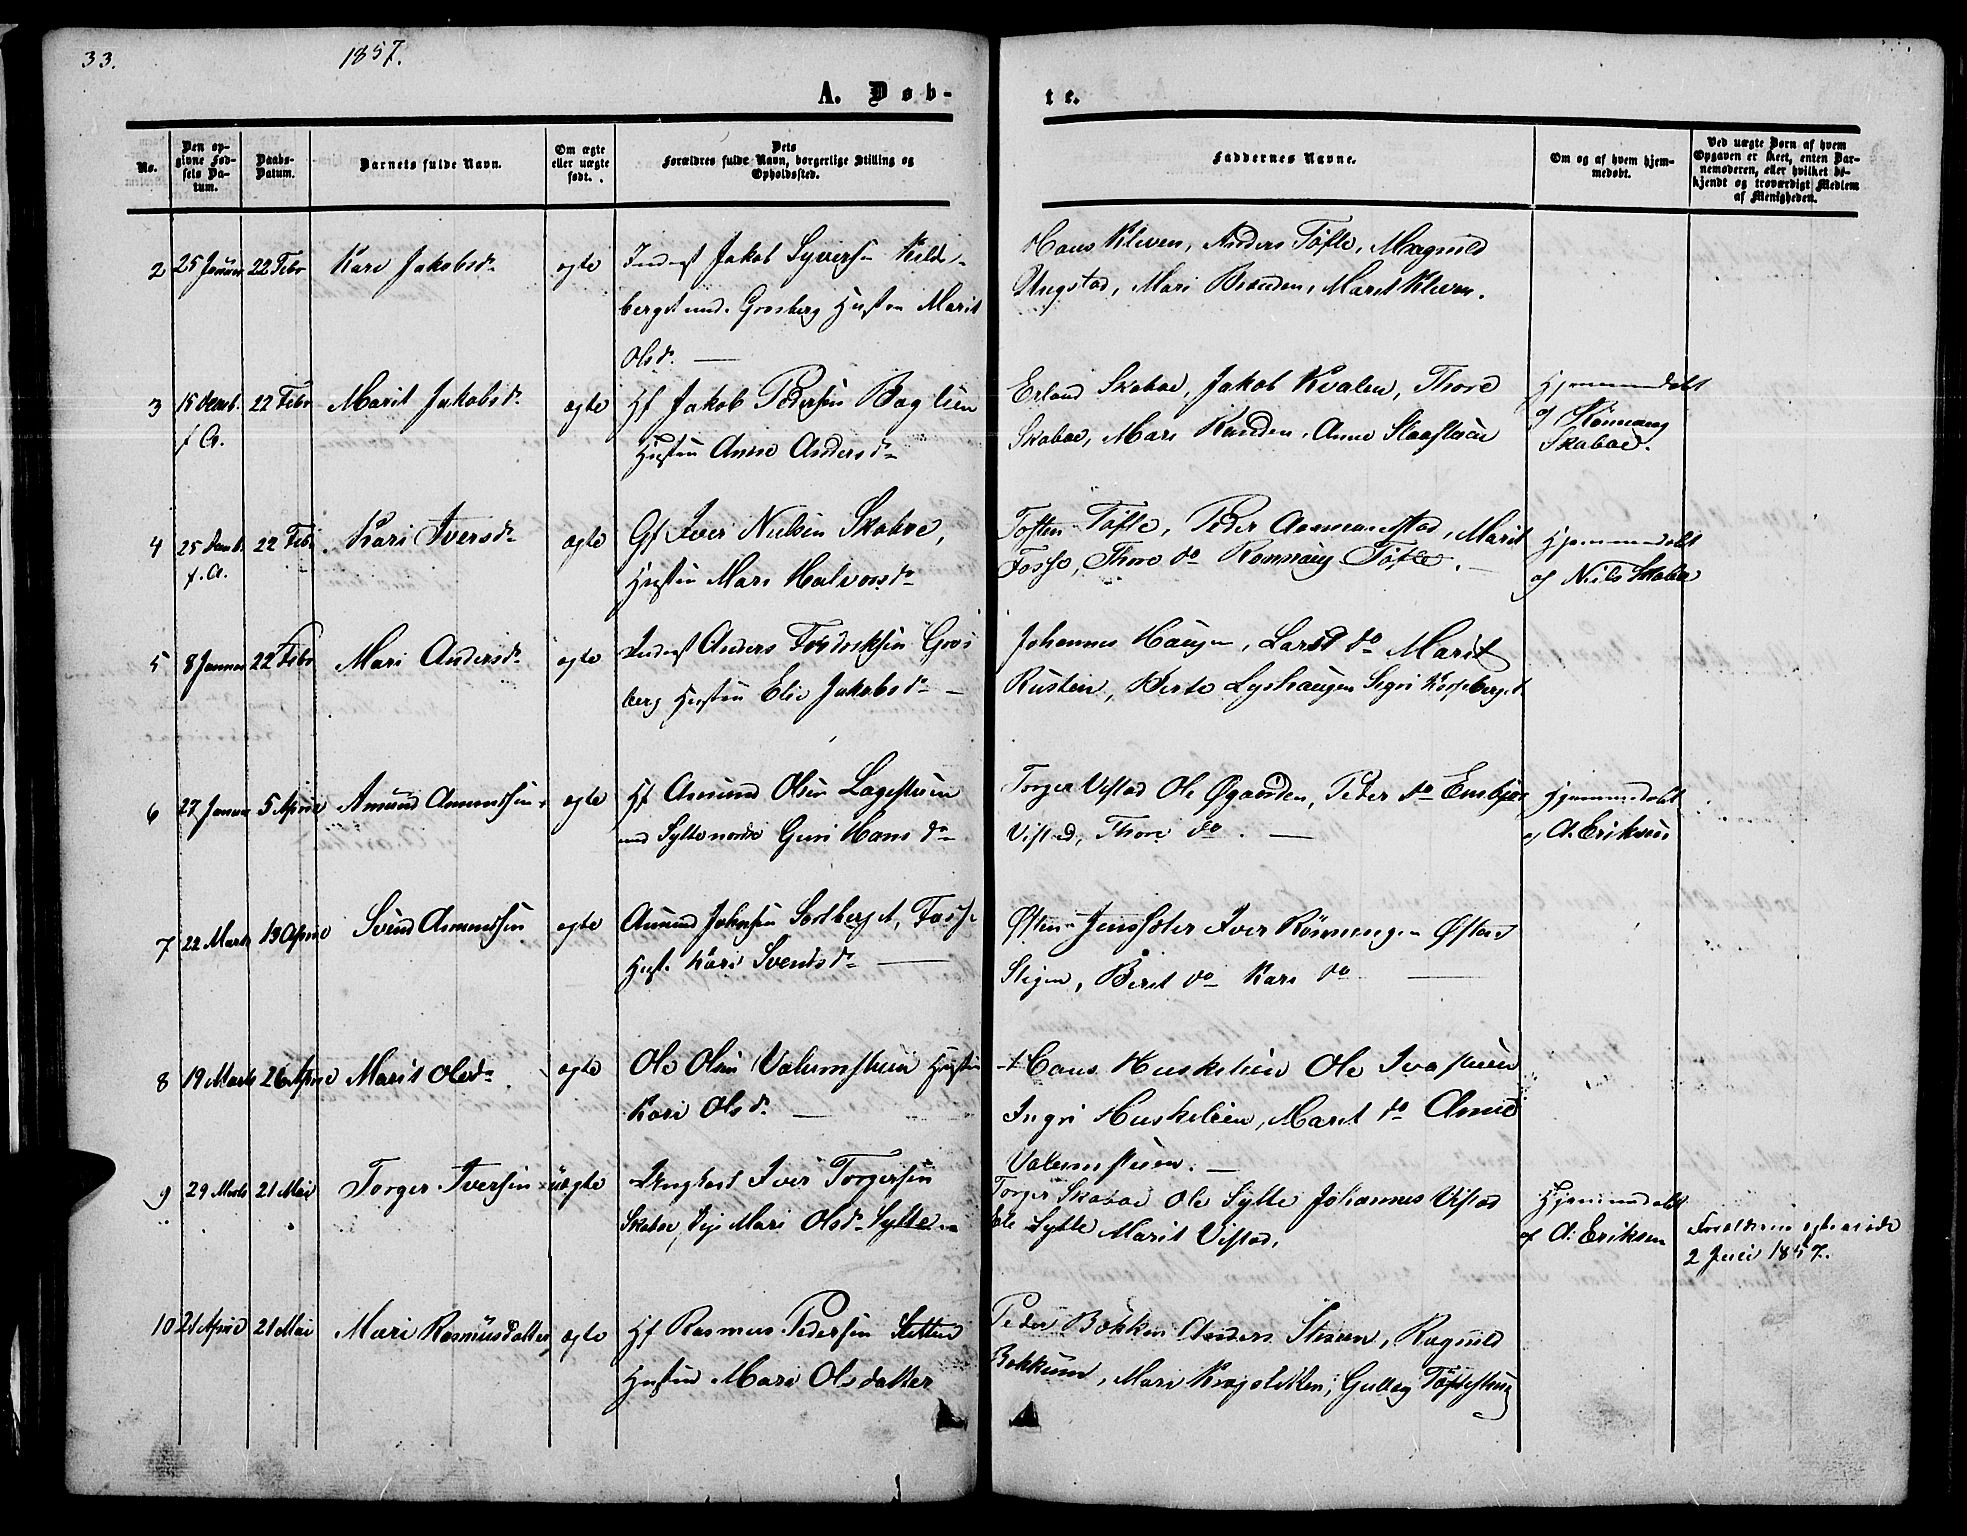 33.
1857.
A. Døb-
te.
No.
Den op-
givne Fød-
sels Da-
tum.
Daabs-
Datum.
Barnets fulde Navn.
Om ægte
eller uægte
født.
Dets
Forældres fulde Navn, borgerlige Stilling og
Opholdssted.
Faddernes Navne.
Om og af hvem hjem-
medøbt.
Ved uægte Børn af hvem
Opgaven er skeet, enten Bar-
nemoderen, eller hvilket be-
kjendt og troværdigt Medlem
af Menigheden.
2 25 Januar 22 Febr Kari Jakobsdr ægte
Inderst Jakob Syversen Kild-
berget und. Grosberg Hustru Marit
Olsdr.
Hans Kleven, Anders Tofte, Magnild
Ungstad, Mari Brænden, Marit Kleven.
3 15 Decemb. 22 Febr Marit Jakobsdr ægte
f A.
Hf Jakob Pedersen Baglien
Hustru Anne Andersdr
Erland Skaboe, Jakob Kvalen, Thore
Skaboe, Mari Randen, Anne
Hjemmedøbt
af Rønnaug
Skaboe.
4 25 Decmb. 22 Feb. Kari Iversdr ægte
f. A.
Gf Iver Nielsen Skaboe,
Hustru Mari Halvorsdr
Tosten Tofte, Peder Ammundstad, Marit
Fosse, Thore do Rønnaug Tofte.
Hjemmedøbt
af Niels Skaboe
5 8 Januar 22 Febr Mari Andersdr ægte
Inderst Anders Fredriksen Gros
berg Hustru Elie Jakobsdr
Johannes Haugen, Lars do Marit
Rusten, Berte Lyshaugen Sigri
6 27 Januar 5 April Amund Amundsen ægte
Hf Amund Olsen Lagestuen
und Sylte nordre Guri Hansdr
Torger Vistad Ole Øgaarden, Peder do Embjør
Vistad, Thore do.
Hjemmedøbt
af A. Eriksen
7 22 Marts 13 April Svend Amundsen ægte
Amund Johnsen Sodberget, Fosse
Hust. Kari Svendsdr
Østen Jensseter Iver Rønningen Østen
Stigen, Berit do Kari do
8 19 Marts 26 April Marit Olsdr ægte
Ole Olsen Valumstuen Hustru
Kari Olsdr.
Hans Huskelien Ole
Ingri Huskelien, Marit do Amund
Valumstuen.
9 29 Marts 21 Mai Torger Iversen uægte
Ungkarl Iver Torgersen
Skaboe, Pige Mari Olsdr Sylte
Torger Skaboe Ole Sylte Johannes Vistad
Sylte Marit Vistad.
Hjemmedøbt
af A. Eriksen
Forældrene egteviede
2 Juli 1857.
10 21 April 21 Mai Mari Rasmusdatter, ægte
Hf Rasmus Pedersen Sletten
Hustru Mari Olsdatter
Peder Bakken Anders Steien, Ragnild
Bakkum, Mari Kragsletten, Gullog